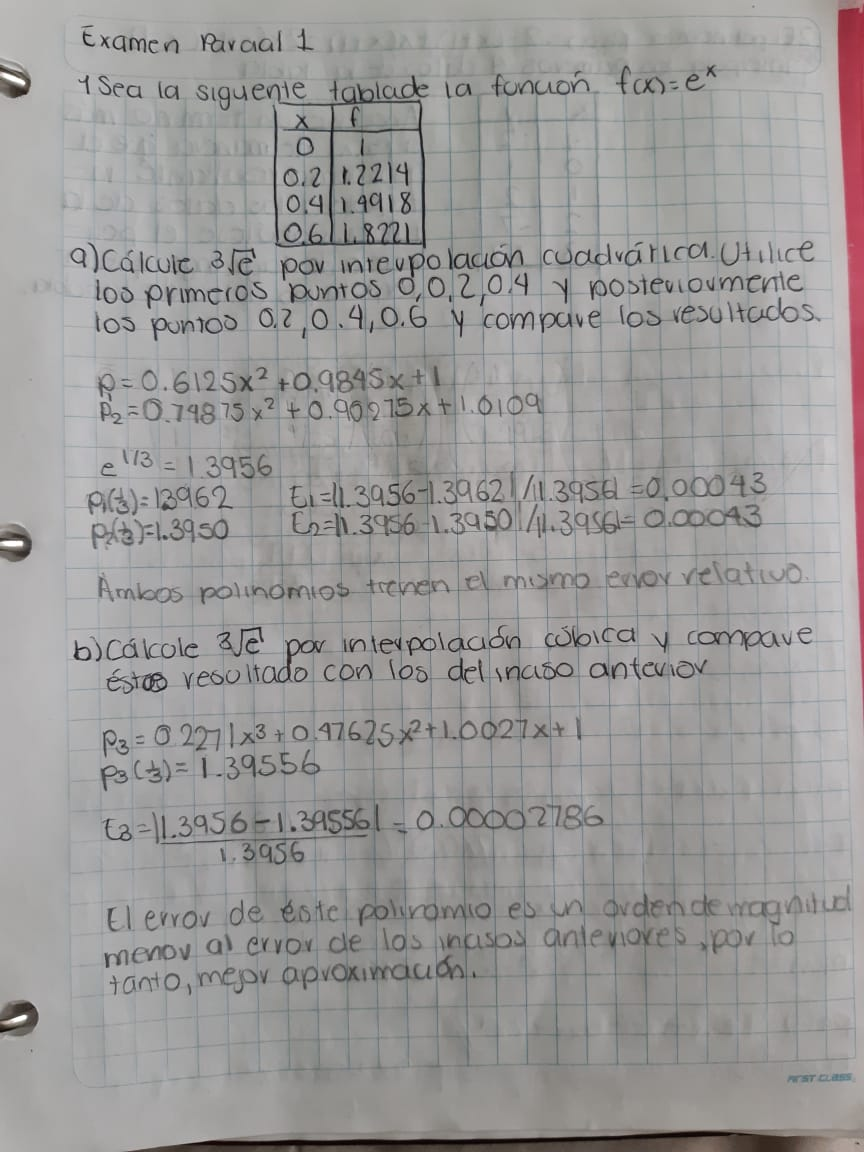 Examen Parcial 1
1 Sea la siguente tablade la función f(x)=e^x
x f
0 1
0.2 1.2214
0.4 1.4918
0.6 1.8221
a) Cálcule 3√e por interpolación cuadrárica. Utilice
los primeros puntos 0, 0.2, 0.4 y posteriormente
los puntos 0.2, 0.4, 0.6 y compare los resultados.
P1=0.6125x²+0.9845x+1
P2=0.74875x²+0.90275x+1.0109
e^1/3=1.3956
P1(1/3)=1.3962 E1=|1.3956-1.3962|/|1.3956|=0.00043
P2(1/3)=1.3950 E2=|1.3956-1.3950|/|1.3956|=0.00043
Ambos polinomios tienen el mismo error relativo.
b) Cálcole 3√e por interpolación cúbica y compare
éste resultado con los del inciso anterior
P3=0.2271x³+0.47625x²+1.0027x+1
P3(1/3)=1.39556
E3=|1.3956-1.39556|/1.3956=0.00002786
El error de éste polinomio es un orden de magnitud
menor al error de los incisos anteriores, por lo
tanto, mejor aproximación.
FIRST CLASS